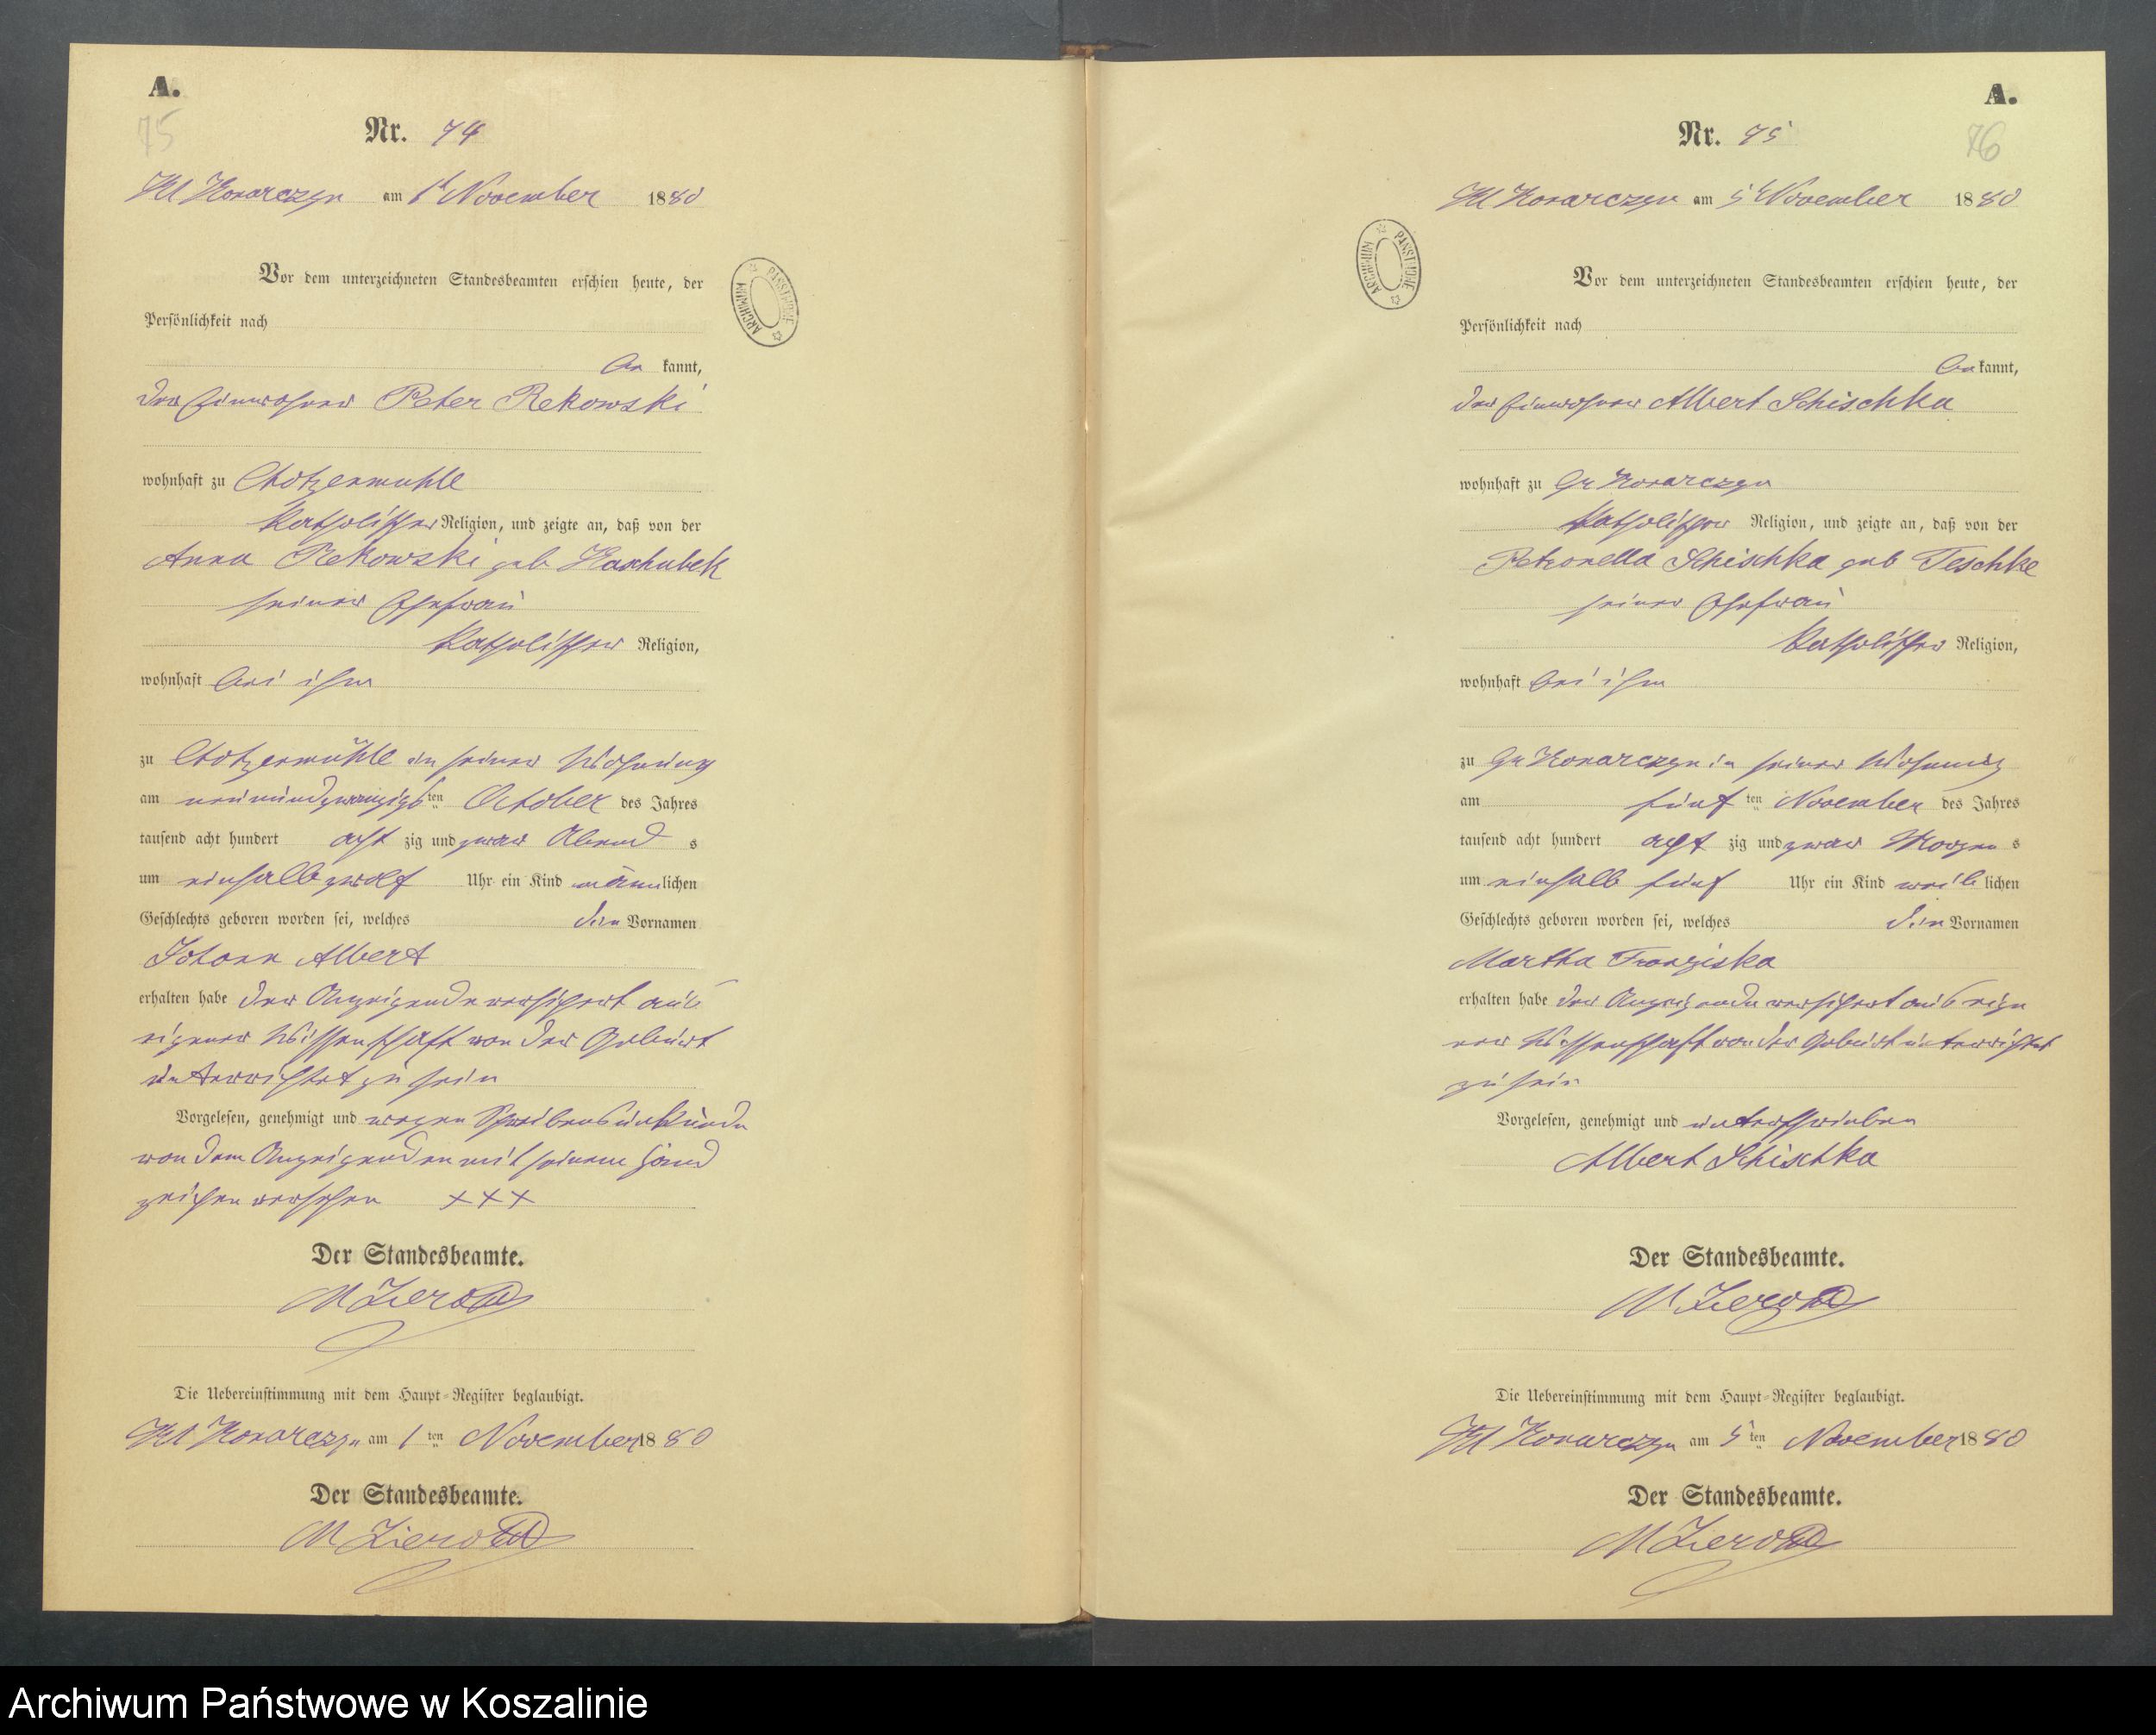 A.
75
Nr. 74
Kl Konarczyn am 1t November 1880
Vor dem unterzeichneten Standesbeamten erschien heute, der
Persönlichkeit nach
be kannt,
der Einwohner Peter Rekowski
wohnhaft zu Chotzenmuhle
katholischer Religion, und zeigte an, daß von der
Anna Rekowski geb Kaschubek
seiner Ehefrau
katholischer Religion,
wohnhaft bei ihm
zu Chotzenmühle in seiner Wohnung
am neunundzwanzigsten October des Jahres
tausend acht hundert acht zig und zwar Abend s
um einhalb zwölf Uhr ein Kind männlichen
Geschlechts geboren worden sei, welches den Vornamen
Johann Albert
erhalten habe der Anzeigende versichert aus
eigener Wissenschaft von der Geburt
unterrichtet zu sein
Vorgelesen, genehmigt und wegen Schreibensunkunde
von dem Anzeigenden mit seinem Hand
zeichen versehen + + +
Der Standesbeamte.
Die Uebereinstimmung mit dem Haupt-Register beglaubigt.
Kl Konarczyn am 1 ten November 1880
Der Standesbeamte.
ARCHIWUM PAŃSTWOWE
A.
76
Nr. 75
Kl Konarczyn am 5t November 1880
Vor dem unterzeichneten Standesbeamten erschien heute, der
Persönlichkeit nach
be kannt,
der Einwohner Albert Schischka
wohnhaft zu Gr Konarczyn
katholischer Religion, und zeigte an, daß von der
Petronella Schischka geb Teschke
seiner Ehefrau
katholischer Religion,
wohnhaft bei ihm
zu Gr Konarczyn in seiner Wohnung
am fünf ten November des Jahres
tausend acht hundert acht zig und zwar Morgen s
um einhalb fünf Uhr ein Kind weib lichen
Geschlechts geboren worden sei, welches den Vornamen
Martha Franziska
erhalten habe der Anzeigende versichert aus eige
ner Wissenschaft von der Geburt unterrichtet
zu sein
Vorgelesen, genehmigt und unterschrieben
Albert Schischka
Der Standesbeamte.
Die Uebereinstimmung mit dem Haupt-Register beglaubigt.
Kl Konarczyn am 5 ten November 1880
Der Standesbeamte.
ARCHIWUM PAŃSTWOWE
Archiwum Państwowe w Koszalinie